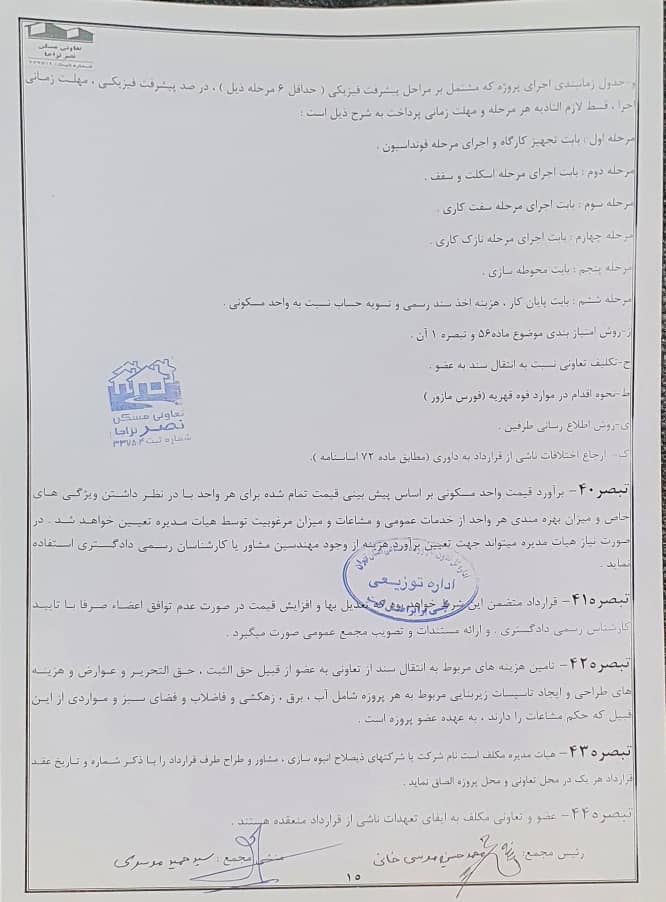 تعاونی مسکن
نصر نزاجا
و-جدول زمانبندی اجرای پروژه که مشتمل بر مراحل پیشرفت فیزیکی ( حداقل ۶ مرحله ذیل ) ، در صد پیشرفت فیزیکی ، مهلت زمانی
اجرا ، قسط لازم التادیه هر مرحله و مهلت زمانی پرداخت به شرح ذیل است :
مرحله اول : بابت تجهیز کارگاه و اجرای مرحله فونداسیون .
مرحله دوم : بابت اجرای مرحله اسکلت و سقف .
مرحله سوم : بابت اجرای مرحله سفت کاری .
مرحله چهارم : بابت اجرای مرحله نازک کاری .
مرحله پنجم : بابت محوطه سازی .
مرحله ششم : بابت پایان کار ، هزینه اخذ سند رسمی و تسویه حساب نسبت به واحد مسکونی .
ز-روش امتیاز بندی موضوع ماده۵۶ و تبصره ۱ آن .
ح-تکلیف تعاونی نسبت به انتقال سند به عضو .
ط-نحوه اقدام در موارد قوه قهریه (فورس ماژور )
ی-روش اطلاع رسانی طرفین .
ک- ارجاع اختلافات ناشی از قرارداد به داوری (مطابق ماده ۷۲ اساسنامه ).
تعاونی مسکن
نصر نزاجا
شماره ثبت ۳۳۷۵۰۴
تبصره۴۰- برآورد قیمت واحد مسکونی بر اساس پیش بینی قیمت تمام شده برای هر واحد با در نظر داشتن ویژگی های
خاص و میزان بهره مندی هر واحد از خدمات عمومی و مشاعات و میزان مرغوبیت توسط هیات مدیره تعیین خواهد شد . در
صورت نیاز هیات مدیره میتواند جهت تعیین برآورد هزینه از وجود مهندسین مشاور یا کارشناسان رسمی دادگستری استفاده
نماید .
اداره توزیعی
تبصره۴۱- قرارداد متضمن این شرط خواهد بود که تعدیل بها و افزایش قیمت در صورت عدم توافق اعضاء صرفا با تایید
کارشناس رسمی دادگستری . و ارائه مستندات و تصویب مجمع عمومی صورت میگیرد .
تبصره۴۲- تامین هزینه های مربوط به انتقال سند از تعاونی به عضو از قبیل حق الثبت ، حق التحریر و عوارض و هزینه
های طراحی و ایجاد تاسیسات زیربنایی مربوط به هر پروژه شامل آب ، برق ، زهکشی و فاضلاب و فضای سبز و مواردی از این
قبیل که حکم مشاعات را دارند ، به عهده عضو پروژه است .
تبصره۴۳- هیات مدیره مکلف است نام شرکت یا شرکتهای ذیصلاح انبوه سازی ، مشاور و طراح طرف قرارداد را با ذکر شماره و تاریخ عقد
قرارداد هر یک در محل تعاونی و محل پروژه الصاق نماید .
تبصره۴۴- عضو و تعاونی مکلف به ایفای تعهدات ناشی از قرارداد منعقده هستند .
رئیس مجمع: محمد حسین موسی خانی
منشی مجمع : سید حمید موسوی
۱۵